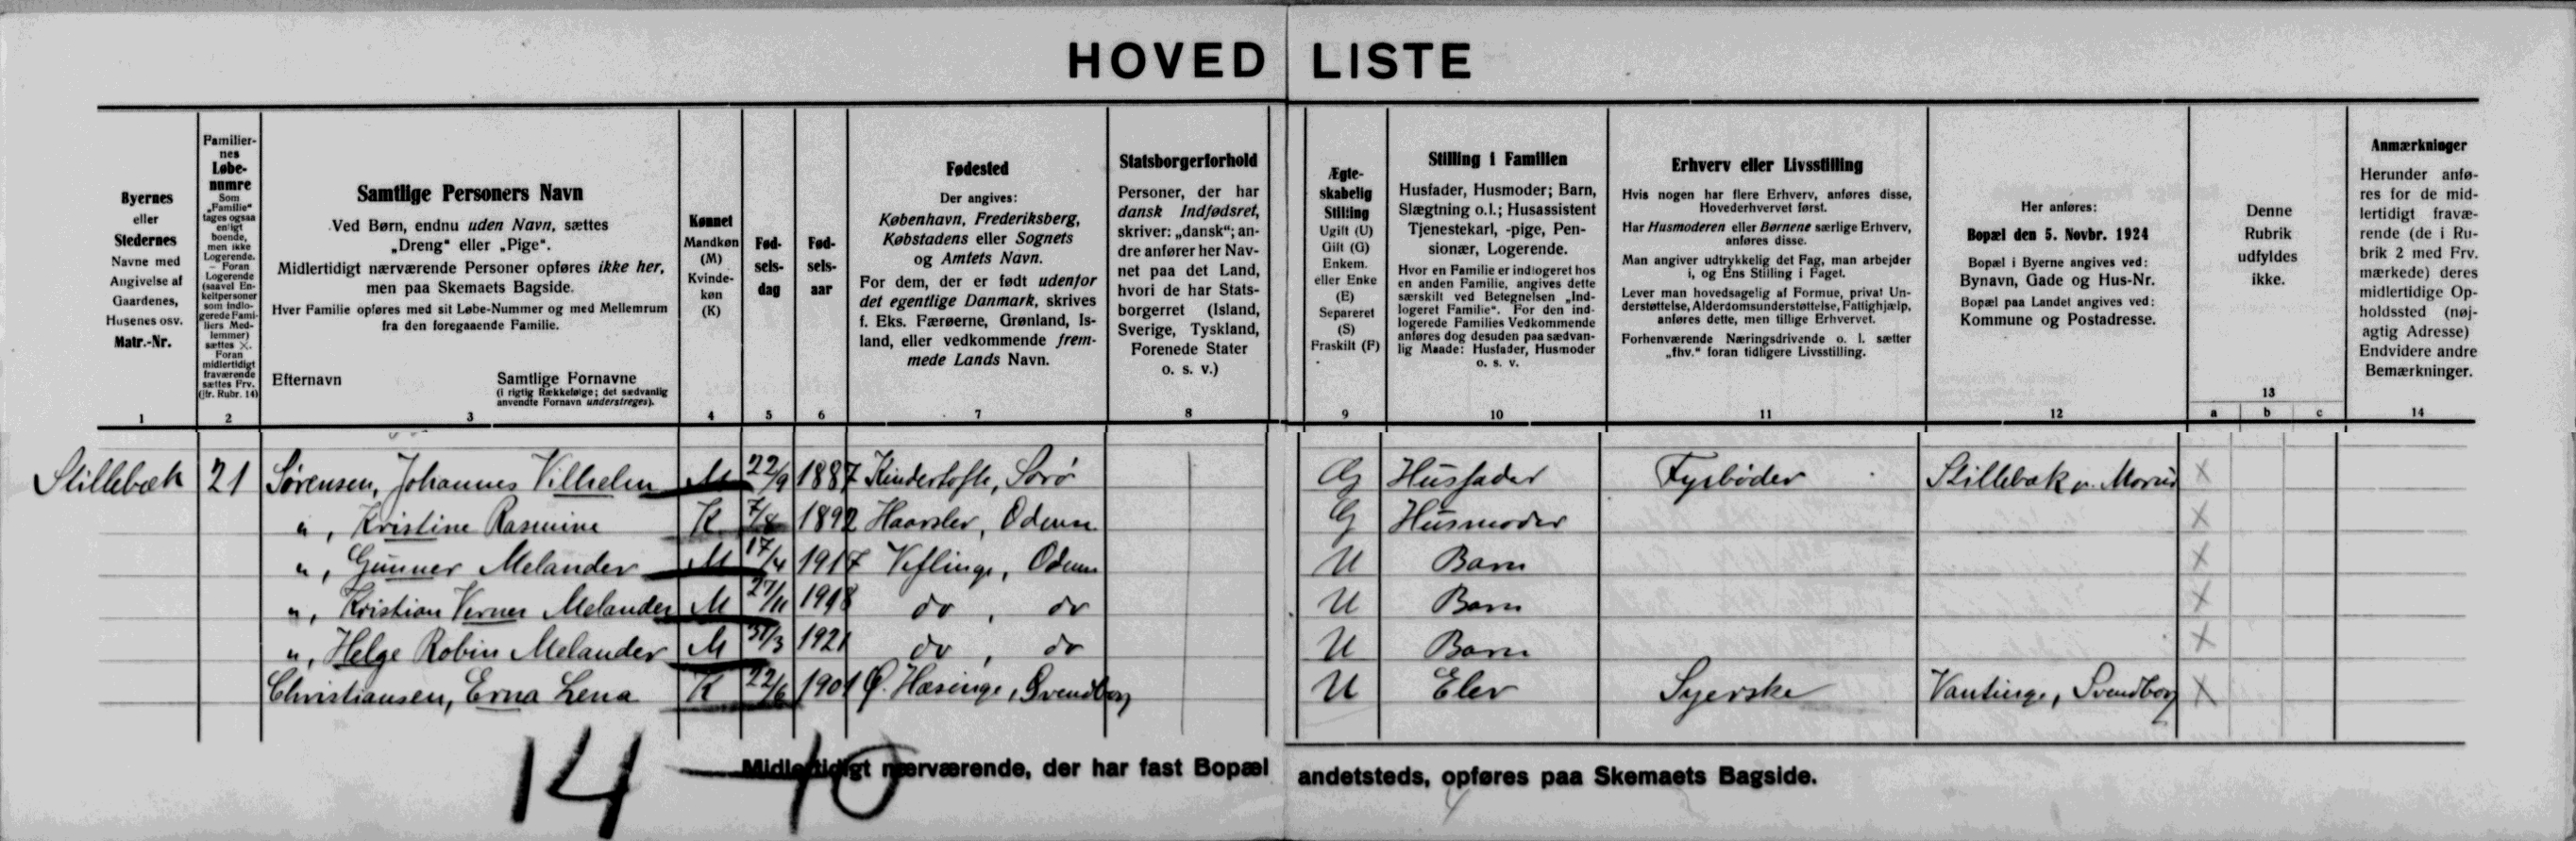 HOVED LISTE
Byernes
eller
Stedernes
Navne med
Angivelse af
Gaardenes,
Husenes osv.
Matr.-Nr.
1
Familier-
nes
Løbe-
numre
Som
„Familie"
tages ogsaa
enligt
boende,
men ikke
Logerende.
– Foran
Logerende
(saavel En-
keltpersoner
som indlo-
gerede Fami-
liers Med-
lemmer)
sættes X.
Foran
midlertidigt
fraværende
sættes Frv.
(jfr. Rubr. 14)
2
Samtlige Personers Navn
Ved Børn, endnu uden Navn, sættes
„Dreng" eller „Pige".
Midlertidigt nærværende Personer opføres ikke her,
men paa Skemaets Bagside.
Hver Familie opføres med sit Løbe-Nummer og med Mellemrum
fra den foregaaende Familie.
Efternavn Samtlige Fornavne
(i rigtig Rækkefølge; det sædvanlig
anvendte Fornavn understreges).
3
Kønnet
Mandkøn
(M)
Kvinde-
køn
(K)
4
Fød-
sels-
dag
5
Fød-
sels-
aar
6
Fødested
Der angives:
København, Frederiksberg,
Købstadens eller Sognets
og Amtets Navn.
For dem, der er født udenfor
det egentlige Danmark, skrives
f. Eks. Færøerne, Grønland, Is-
land, eller vedkommende frem-
mede Lands Navn.
7
Statsborgerforhold
Personer, der har
dansk Indfødsret,
skriver: „dansk"; an-
dre anfører her Nav-
net paa det Land,
hvori de har Stats-
borgerret (Island,
Sverige, Tyskland,
Forenede Stater
o. s. v.)
8
Ægte-
skabelig
Stilling
Ugift (U)
Gift (G)
Enkem.
eller Enke
(E)
Separeret
(S)
Fraskilt (F)
9
Stilling i Familien
Husfader, Husmoder; Barn,
Slægtning o.l.; Husassistent
Tjenestekarl, -pige, Pen-
sionær, Logerende.
Hvor en Familie er indlogeret hos
en anden Familie, angives dette
særskilt ved Betegnelsen „Ind-
logeret Familie". For den ind-
logerede Families Vedkommende
anføres dog desuden paa sædvan-
lig Maade: Husfader, Husmoder
o. s. v.
10
Erhverv eller Livsstilling
Hvis nogen har flere Erhverv, anføres disse,
Hovederhvervet først.
Har Husmoderen eller Børnene særlige Erhverv,
anføres disse.
Man angiver udtrykkelig det Fag, man arbejder
i, og Ens Stilling i Faget.
Lever man hovedsagelig af Formue, privat Un-
derstøttelse, Alderdomsunderstøttelse, Fattighjælp,
anføres dette, men tillige Erhvervet.
Forhenværende Næringsdrivende o. l. sætter
„fhv." foran tidligere Livsstilling.
11
Her anføres:
Bopæl den 5. Novbr. 1924
Bopæl i Byerne angives ved:
Bynavn, Gade og Hus-Nr.
Bopæl paa Landet angives ved:
Kommune og Postadresse.
12
Denne
Rubrik
udfyldes
ikke.
13
a b c
Anmærkninger
Herunder anfø-
res for de mid-
lertidigt fravæ-
rende (de i Ru-
brik 2 med Frv.
mærkede) deres
midlertidige Op-
holdssted (nøj-
agtig Adresse)
Endvidere andre
Bemærkninger.
14
Stillebæk 21 Sørensen, Johannes Vilhelm M 22/9 1887 Kindertofte, Sorø G Husfader Fyrbøder Stillebæk p. Morud X
„ , Kristine Rasmine K 7/8 1892 Haarslev, Odense G Husmoder X
„ , Gunner Melander M 17/4 1917 Veflinge, Odense U Barn X
„ , Kristian Verner Melander M 27/11 1918 do , do U Barn X
„ , Helge Robin Melander M 31/3 1921 do , do U Barn X
Christiansen, Erna Lena K 22/6 1901 Ø. Hæsinge, Svendborg U Elev Syerske Vantinge, Svendborg X
14 – 10
Midlertidigt nærværende, der har fast Bopæl andetsteds, opføres paa Skemaets Bagside.